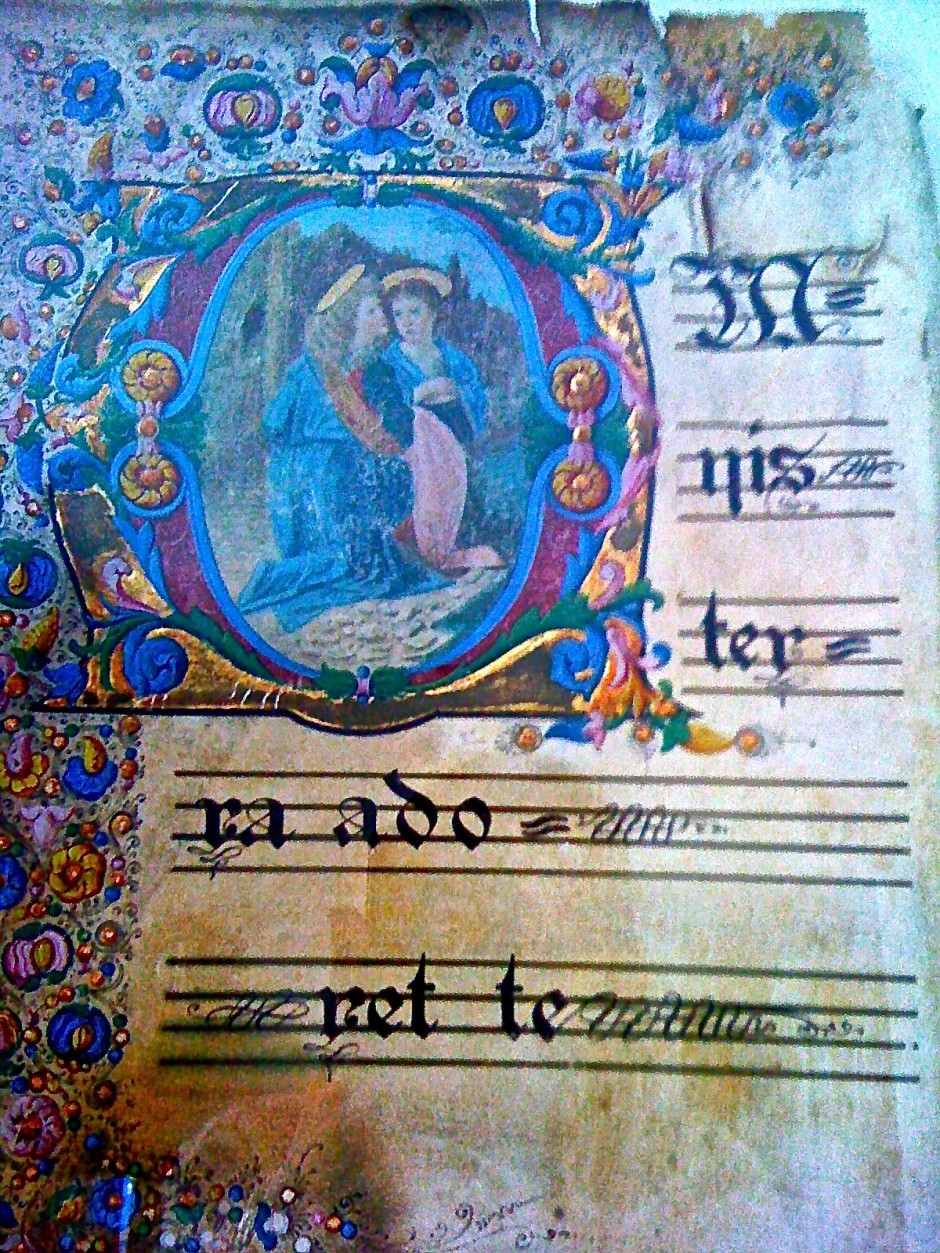 OM=
nis
ter=
ra ado=
ret te